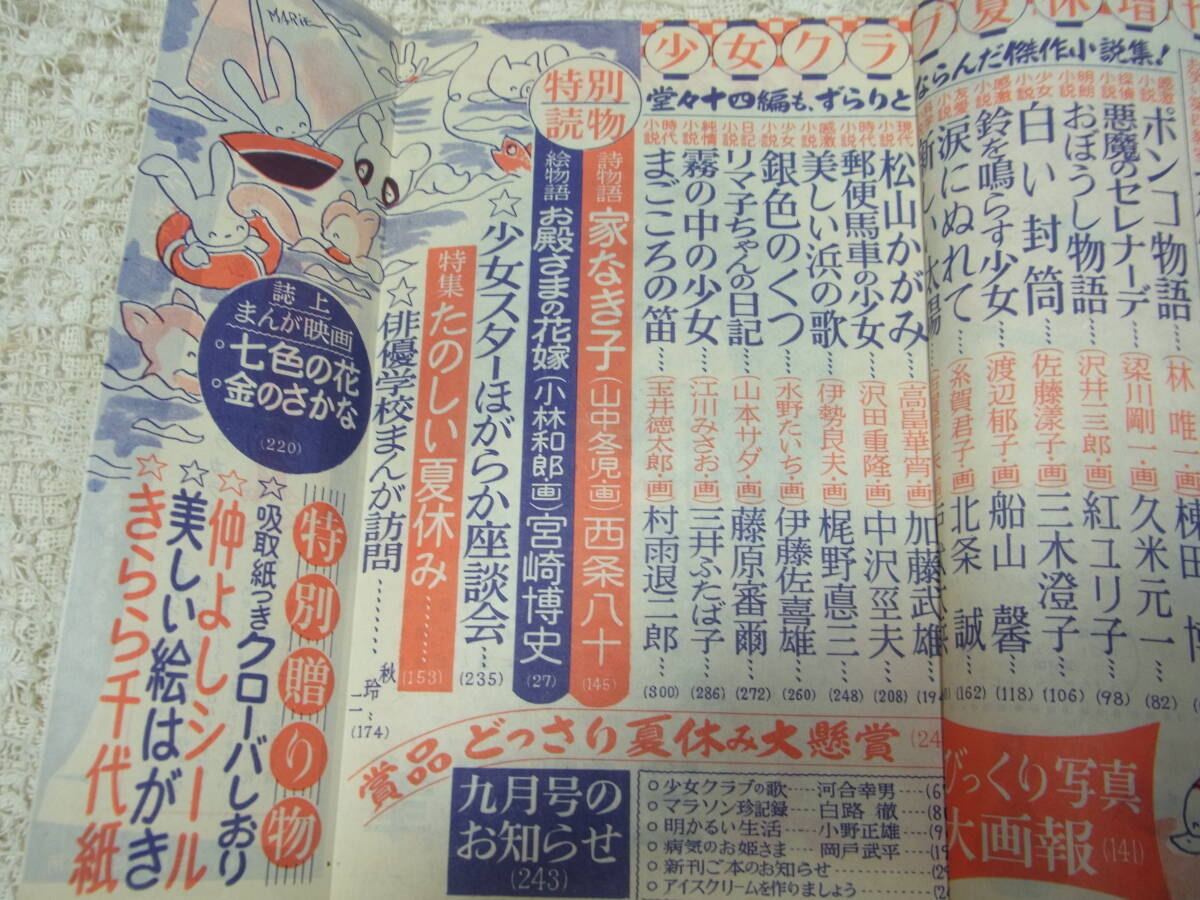 少女クラブ夏休増刊
堂々十四編も、ずらりとならんだ傑作小説集!
ポンコ物語……(林 唯一・画)
感激小説 悪魔のセレナーデ…(梁川剛一・画)久米元一…(82)
探偵小説 おぼうし物語…(沢井三郎・画)紅ユリ子…(98)
明朗小説 白い封筒…(佐藤漾子・画)三木澄子…(106)
少女小説 鈴を鳴らす少女…(渡辺郁子・画)船山 馨…(118)
感激小説 涙にぬれて…(糸賀君子・画)北条 誠…(162)
友愛小説
現代小説 松山かがみ…(高畠華宵・画)加藤武雄…(194
時代小説 郵便馬車の少女…(沢田重隆・画)中沢巠夫…(208)
感激小説 美しい浜の歌…(伊勢良夫・画)梶野悳三…(248)
少女小説 銀色のくつ…(水野たいち・画)伊藤佐喜雄…(260)
日記小説 リマ子ちゃんの日記…(山本サダ・画)藤原審爾…(272)
純情小説 霧の中の少女…(江川みさお・画)三井ふたば子…(286)
時代小説 まごころの笛…(玉井徳太郎・画)村雨退二郎…(300)
特別読物
詩物語 家なき子(山中冬児・画)西条八十(145)
絵物語 お殿さまの花嫁(小林和郎・画)宮崎博史(27)
☆少女スターほがらか座談会…(235)
特集 たのしい夏休み……(153)
☆俳優学校まんが訪問……秋 玲二…(174)
MARIE
誌上まんが映画
。七色の花
。金のさかな
(220)
特別贈り物
☆吸取紙つきクローバしおり
☆仲よしシール
☆美しい絵はがき
☆きらら千代紙
賞品どっさり夏休み大懸賞(24
九月号のお知らせ(243)
○少女クラブの歌……河合幸男…(6
○マラソン珍記録……白路 徹…(8
○明かるい生活……小野正雄…(9
○病気のお姫さま……岡戸武平…(19
○新刊ご本のお知らせ……(29
○アイスクリームを作りましょう……(2
びっくり写真大画報(141)